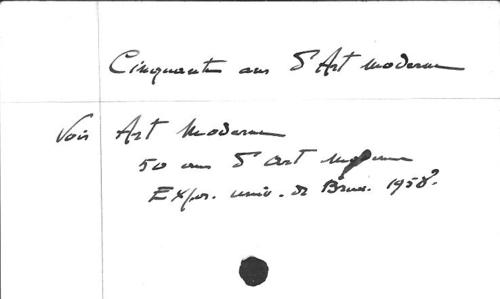 Cinquante ans d'Art moderne
Voir Art Moderne
50 ans d'art moderne
Expos. univ. de Brux. 1958.